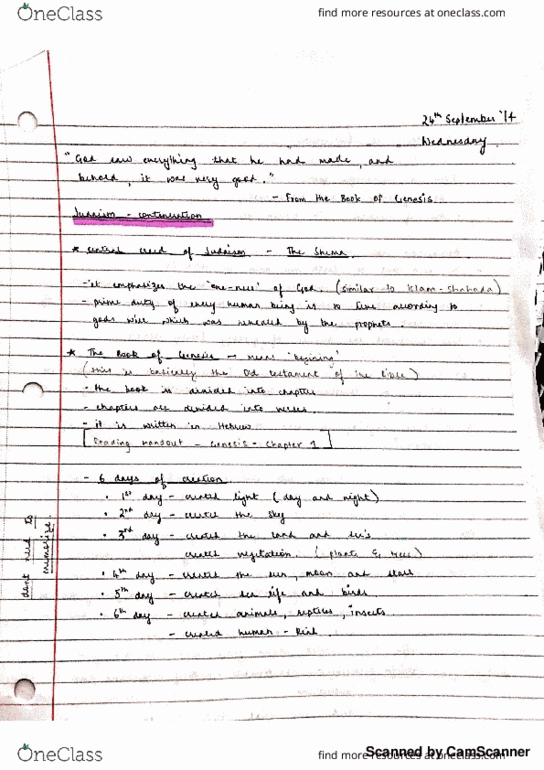 OneClass
find more resources at oneclass.com
24th September '14
Wednesday
"God saw everything that he had made, and
behold, it was very good."
- From the Book of Genesis
Judaism - continuation
* central creed of Judaism - The Shema
- it emphasizes the 'one-ness' of God. (similar to Islam - Shahada)
- prime duty of every human being is to live according to
gods will which was revealed by the prophets.
* The Book of Genesis - means 'begining'
(this is basically the Old testament of the bible)
- the book is divided into chapters
- chapters are divided into verses.
- it is written in Hebrew
[Reading handout - Genesis - Chapter 1]
- 6 days of creation
• 1st day - created light (day and night)
• 2nd day - created the sky
• 3rd day - created the land and
created vegetation. (plants & trees)
• 4th day - created the sun, moon and stars
• 5th day - created sea life and birds
• 6th day - created animals, reptiles, insects
- created human -
dont need to
memorize.
OneClass
find more resources at oneclass.com
Scanned by CamScanner